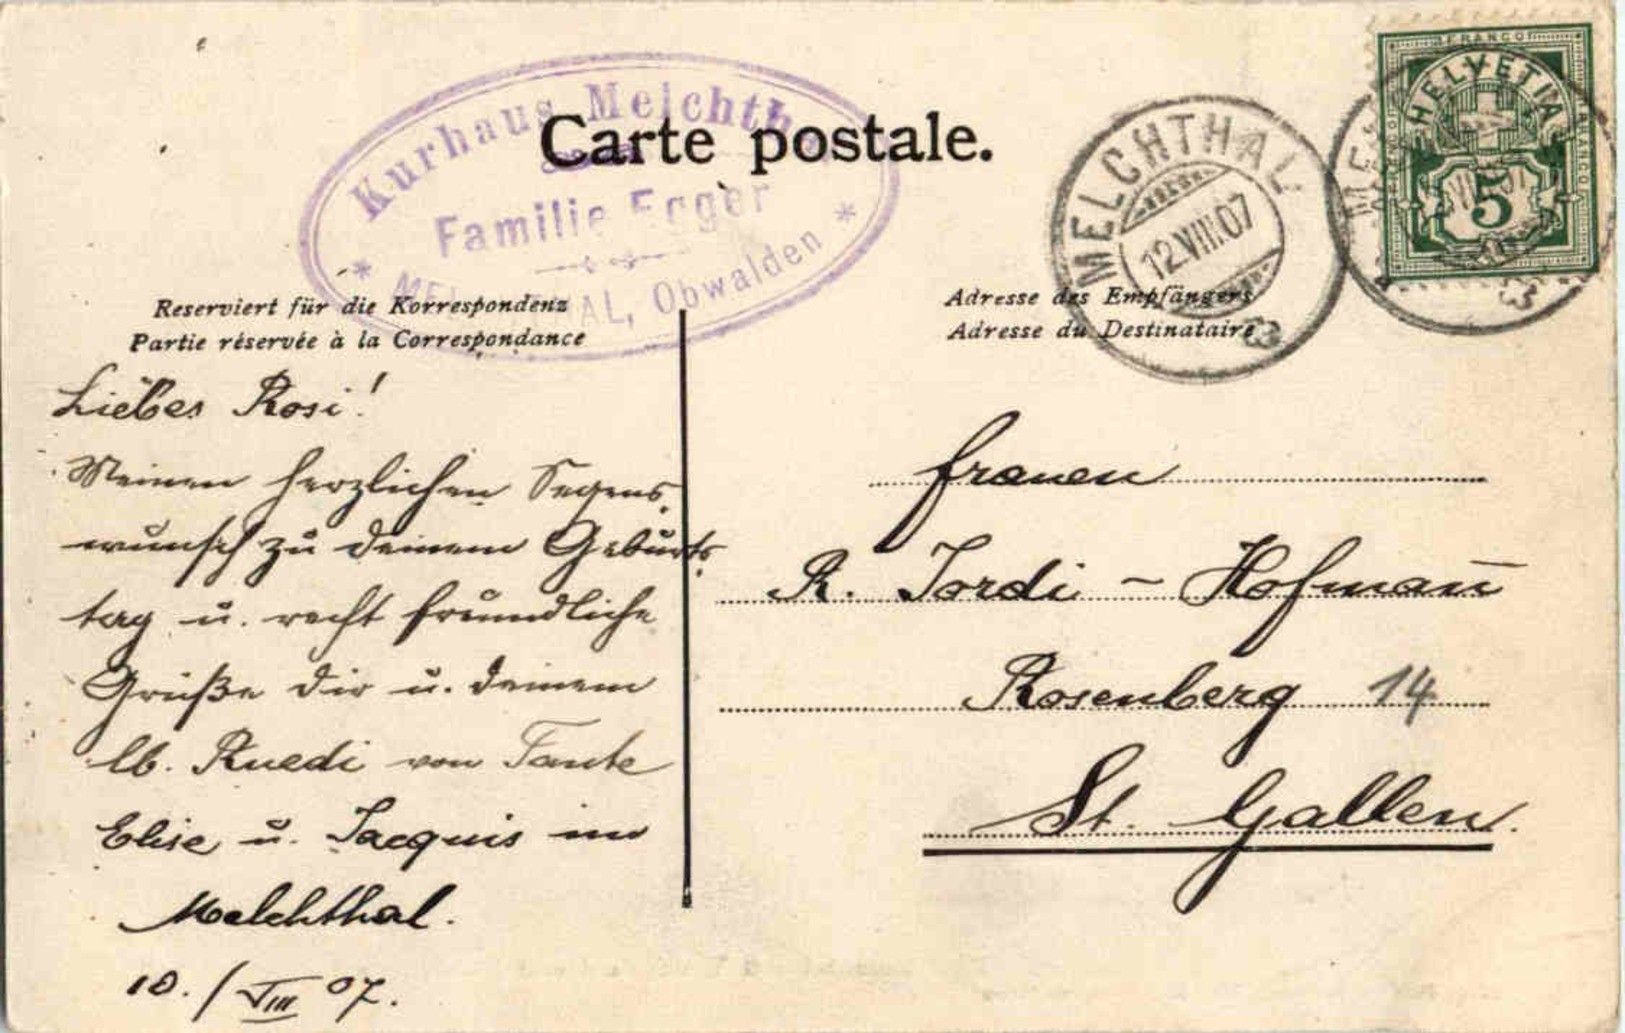 Kurhaus Melchth
Familie Egger
MEL THAL, Obwalden
Carte postale.
MELCHTHAL
12.VIII.07
FRANCO
HELVETIA
5
Reserviert für die Korrespondenz
Partie réservée à la Correspondance
Adresse des Empfängers
Adresse du Destinataire
Liebes Rosi!
Meinen herzlichen Segens-
wunsch zu deinem Geburts-
tag u. recht freundliche
Grüße dir u. deinem
lb. Ruedi von Tante
Elise u. Jacquis im
Melchthal.
10./VIII 07.
Frauen
R. Jordi - Hofman̄
Rosenberg 14
St. Gallen.